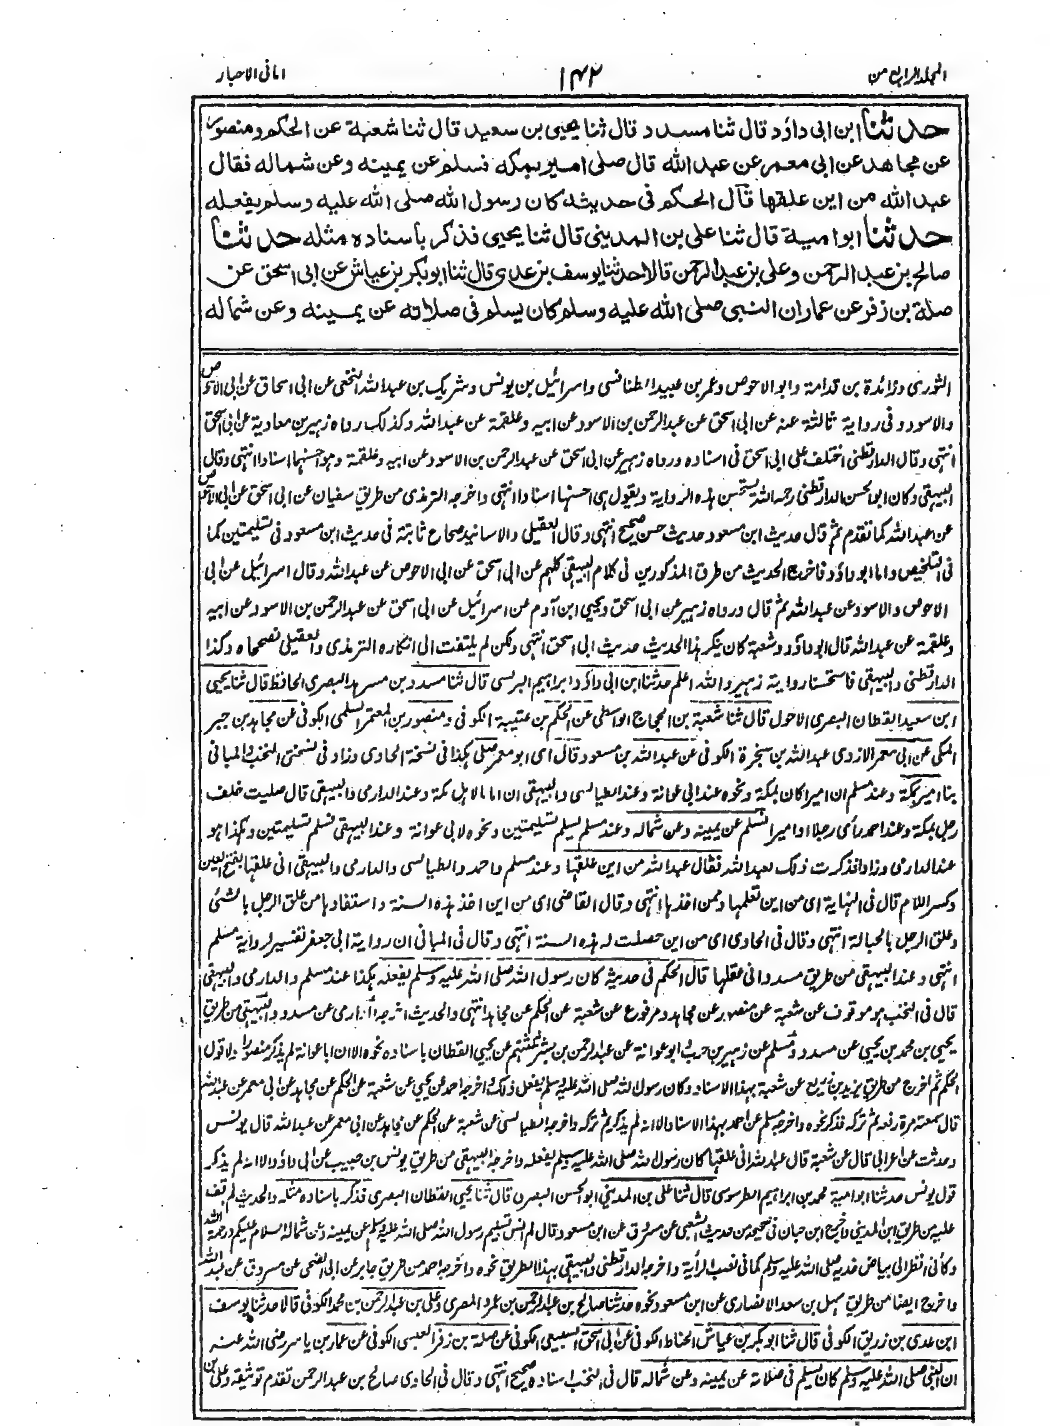 المجلد الرابع من
١٤٢
امانی الاحبار
حدثنا ابن ابی داؤد قال ثنا مسدد قال ثنا یحیی بن سعید قال ثنا شعبة عن الحکم و منصور
عن مجاهد عن ابی معمر عن عبد الله قال صلی امیر بمکه فسلم عن یمینه وعن شماله فقال
عبد الله من این علقها قال الحکم فی حدیثه کان رسول الله صلی الله علیه وسلم یفعله
حدثنا ابو امیة قال ثنا علی بن المدینی قال ثنا یحیی فذکر باسناده مثله حدثنا
صالح بن عبد الرحمن وعلی بن عبد الرحمن قالا حدثنا یوسف بن عدی قال ثنا ابو بکر بن عیاش عن ابی اسحق عن
صلة بن زفر عن عمار ان النبی صلی الله علیه وسلم کان یسلم فی صلاته عن یمینه وعن شماله
الثوری وزائدة بن قدامة وابو الاحوص وعمر بن عبید الطنافسی واسرائیل بن یونس وشریک بن عبد الله النخعی عن ابی اسحاق عن ابی الاحوص
والاسود وفی روایة ثالثة عنه عن ابی اسحق عن عبد الرحمن بن الاسود عن ابیه وعلقمة عن عبد الله وکذلک رواه زهیر بن معاویة عن ابی اسحق
انتهی وقال الدارقطنی اختلف علی ابی اسحق فی اسناده ورواه زهیر عن ابی اسحق عن عبد الرحمن بن الاسود عن ابیه وعلقمة وهو احسنها اسنادا انتهی وقال
البیهقی وکان ابو الحسن الدارقطنی رحمه الله یستحسن هذه الروایة ویقول هی احسنها اسنادا انتهی واخرجه الترمذی من طریق سفیان عن ابی اسحق عن ابی الاحوص
عن عبد الله کما تقدم ثم قال حدیث ابن مسعود حدیث حسن صحیح انتهی وقال العقیلی والاسانید صحاح ثابتة فی حدیث ابن مسعود فی تسلیمتین کما
فی التلخیص واما ابو داؤد فاخرج الحدیث من طرق المذکورین فی کلام البیهقی کلهم عن ابی اسحق عن ابی الاحوص عن عبد الله وقال اسرائیل عن ابی
الاحوص والاسود عن عبد الله ثم قال ورواه زهیر عن ابی اسحق ویحیی ابن آدم عن اسرائیل عن ابی اسحق عن عبد الرحمن بن الاسود عن ابیه
وعلقمة عن عبد الله قال ابو داؤد وشعبة کان ینکر هذا الحدیث حدیث ابی اسحق انتهی ولکن لم یلتفت الی انکاره الترمذی والعقیلی فصححاه وکذا
الدارقطنی والبیهقی فاستحسنا روایة زهیر والله اعلم حدثنا ابن ابی داؤد ابراهیم البرلسی قال ثنا مسدد بن مسرهد البصری الحافظ قال ثنا یحیی
ابن سعید القطان البصری الاحول قال ثنا شعبة بن الحجاج الواسطی عن الحکم بن عتیبة الکوفی ومنصور بن المعتمر السلمی الکوفی عن مجاهد بن جبر
المکی عن ابی معمر الازدی عبد الله بن سخبرة الکوفی عن عبد الله بن مسعود قال ای ابو معمر صلی هکذا فی نسخة الحاوی وزاد فی نسختی النخب والمبانی
بنا امیر بمکة وعند مسلم ان امیرا کان بمکة ونحوه عند ابی عوانة وعند الطیالسی والبیهقی ان اماما لاهل مکة وعند الدارمی والبیهقی قال صلیت خلف
رجل بمکة وعند احمد رأی رجلا او امیرا فسلم عن یمینه وعن شماله وعند مسلم یسلم تسلیمتین ونحوه لابی عوانة وعند البیهقی فسلم تسلیمتین وهکذا هو
عند الدارمی وزاد فذکرت ذلک لعبد الله فقال عبد الله من این علقها وعند مسلم واحمد والطیالسی والدارمی والبیهقی انی علقها بفتح العین
وکسر اللام قال فی النهایة ای من این تعلمها وممن اخذها انتهی وقال القاضی ای من این اخذ هذه السنة واستفادها من علق الرجل بالشئ
وعلق الرجل بالحبالة انتهی وقال فی الحاوی ای من این حصلت له هذه السنة انتهی وقال فی المبانی ان روایة ابی جعفر تفسیر لروایة مسلم
انتهی وعند البیهقی من طریق مسدد انی عقلها قال الحکم فی حدیثه کان رسول الله صلی الله علیه وسلم یفعله هکذا عند مسلم والدارمی والبیهقی
قال فی النخب هو موقوف عن شعبة عن منصور عن مجاهد ومرفوع عن شعبة عن الحکم عن مجاهد انتهی والحدیث اخرجه الدارمی عن مسدد والبیهقی من طریق
یحیی بن محمد بن یحیی عن مسدد ومسلم عن زهیر بن حرب وابو عوانة عن عبد الرحمن بن بشر کلهم عن یحیی القطان باسناده نحوه الا ان ابا عوانة لم یذکر منصورا ولا قول
الحکم ثم اخرج من طریق یزید بن زریع عن شعبة بهذا الاسناد وکان رسول الله صلی الله علیه وسلم یفعل ذلک واخرجه احمد عن یحیی عن شعبة عن الحکم عن مجاهد عن ابی معمر عن عبد الله
قال سمعته مرة رفعه ثم ترکه فذکر نحوه واخرجه مسلم عن احمد بهذا الاسناد الا انه لم یذکر ثم ترکه واخرجه الطیالسی عن شعبة عن الحکم عن مجاهد عن ابی معمر عن عبد الله قال یونس
وحدثت عن اعرابی قال عن شعبة قال عبد الله انی علقها کان رسول الله صلی الله علیه وسلم یفعله واخرجه البیهقی من طریق یونس بن حبیب عن ابی داؤد الا انه لم یذکر
قول یونس حدثنا ابو امیة محمد بن ابراهیم الطرسوسی قال ثنا علی بن المدینی ابو الحسن البصری قال ثنا یحیی القطان البصری فذکر باسناده مثله والحدیث لم نقف
علیه من طریق ابن المدینی واخرج ابن حبان فی صحیحه من حدیث الشعبی عن مسروق عن ابن مسعود قال لم انس تسلیم رسول الله صلی الله علیه وسلم عن یمینه وعن شماله السلام علیکم ورحمة الله
وکأنی انظر الی بیاض خدیه صلی الله علیه وسلم کما فی نصب الرایة واخرجه الدارقطنی والبیهقی بهذا الطریق نحوه واخرجه احمد من طریق جابر عن ابی الضحی عن مسروق عن عبد الله
واخرج ایضا من طریق سهل بن سعد الانصاری عن ابن مسعود نحوه حدثنا صالح بن عبد الرحمن بن عمرو المصری وعلی بن عبد الرحمن بن محمد الکوفی قالا حدثنا یوسف
ابن عدی بن زریق الکوفی قال ثنا ابو بکر بن عیاش الحناط الکوفی عن ابی اسحق السبیعی الکوفی عن صلة بن زفر العبسی الکوفی عن عمار بن یاسر رضی الله عنه
ان النبی صلی الله علیه وسلم کان یسلم فی صلاته عن یمینه وعن شماله قال فی النخب اسناده صحیح انتهی وقال فی الحاوی صالح بن عبد الرحمن تقدم توثیقه وعلی بن